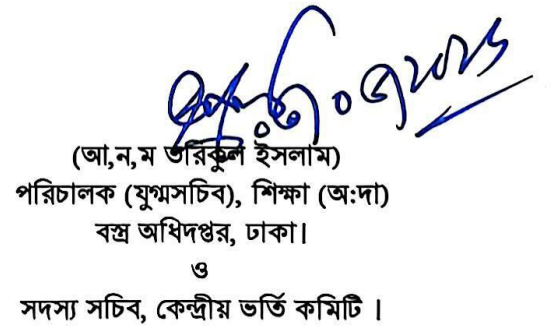 (আ,ন,ম তরিকুল ইসলাম)
পরিচালক (যুগ্মসচিব), শিক্ষা (অ:দা)
বস্ত্র অধিদপ্তর, ঢাকা।
ও
সদস্য সচিব, কেন্দ্রীয় ভর্তি কমিটি ।